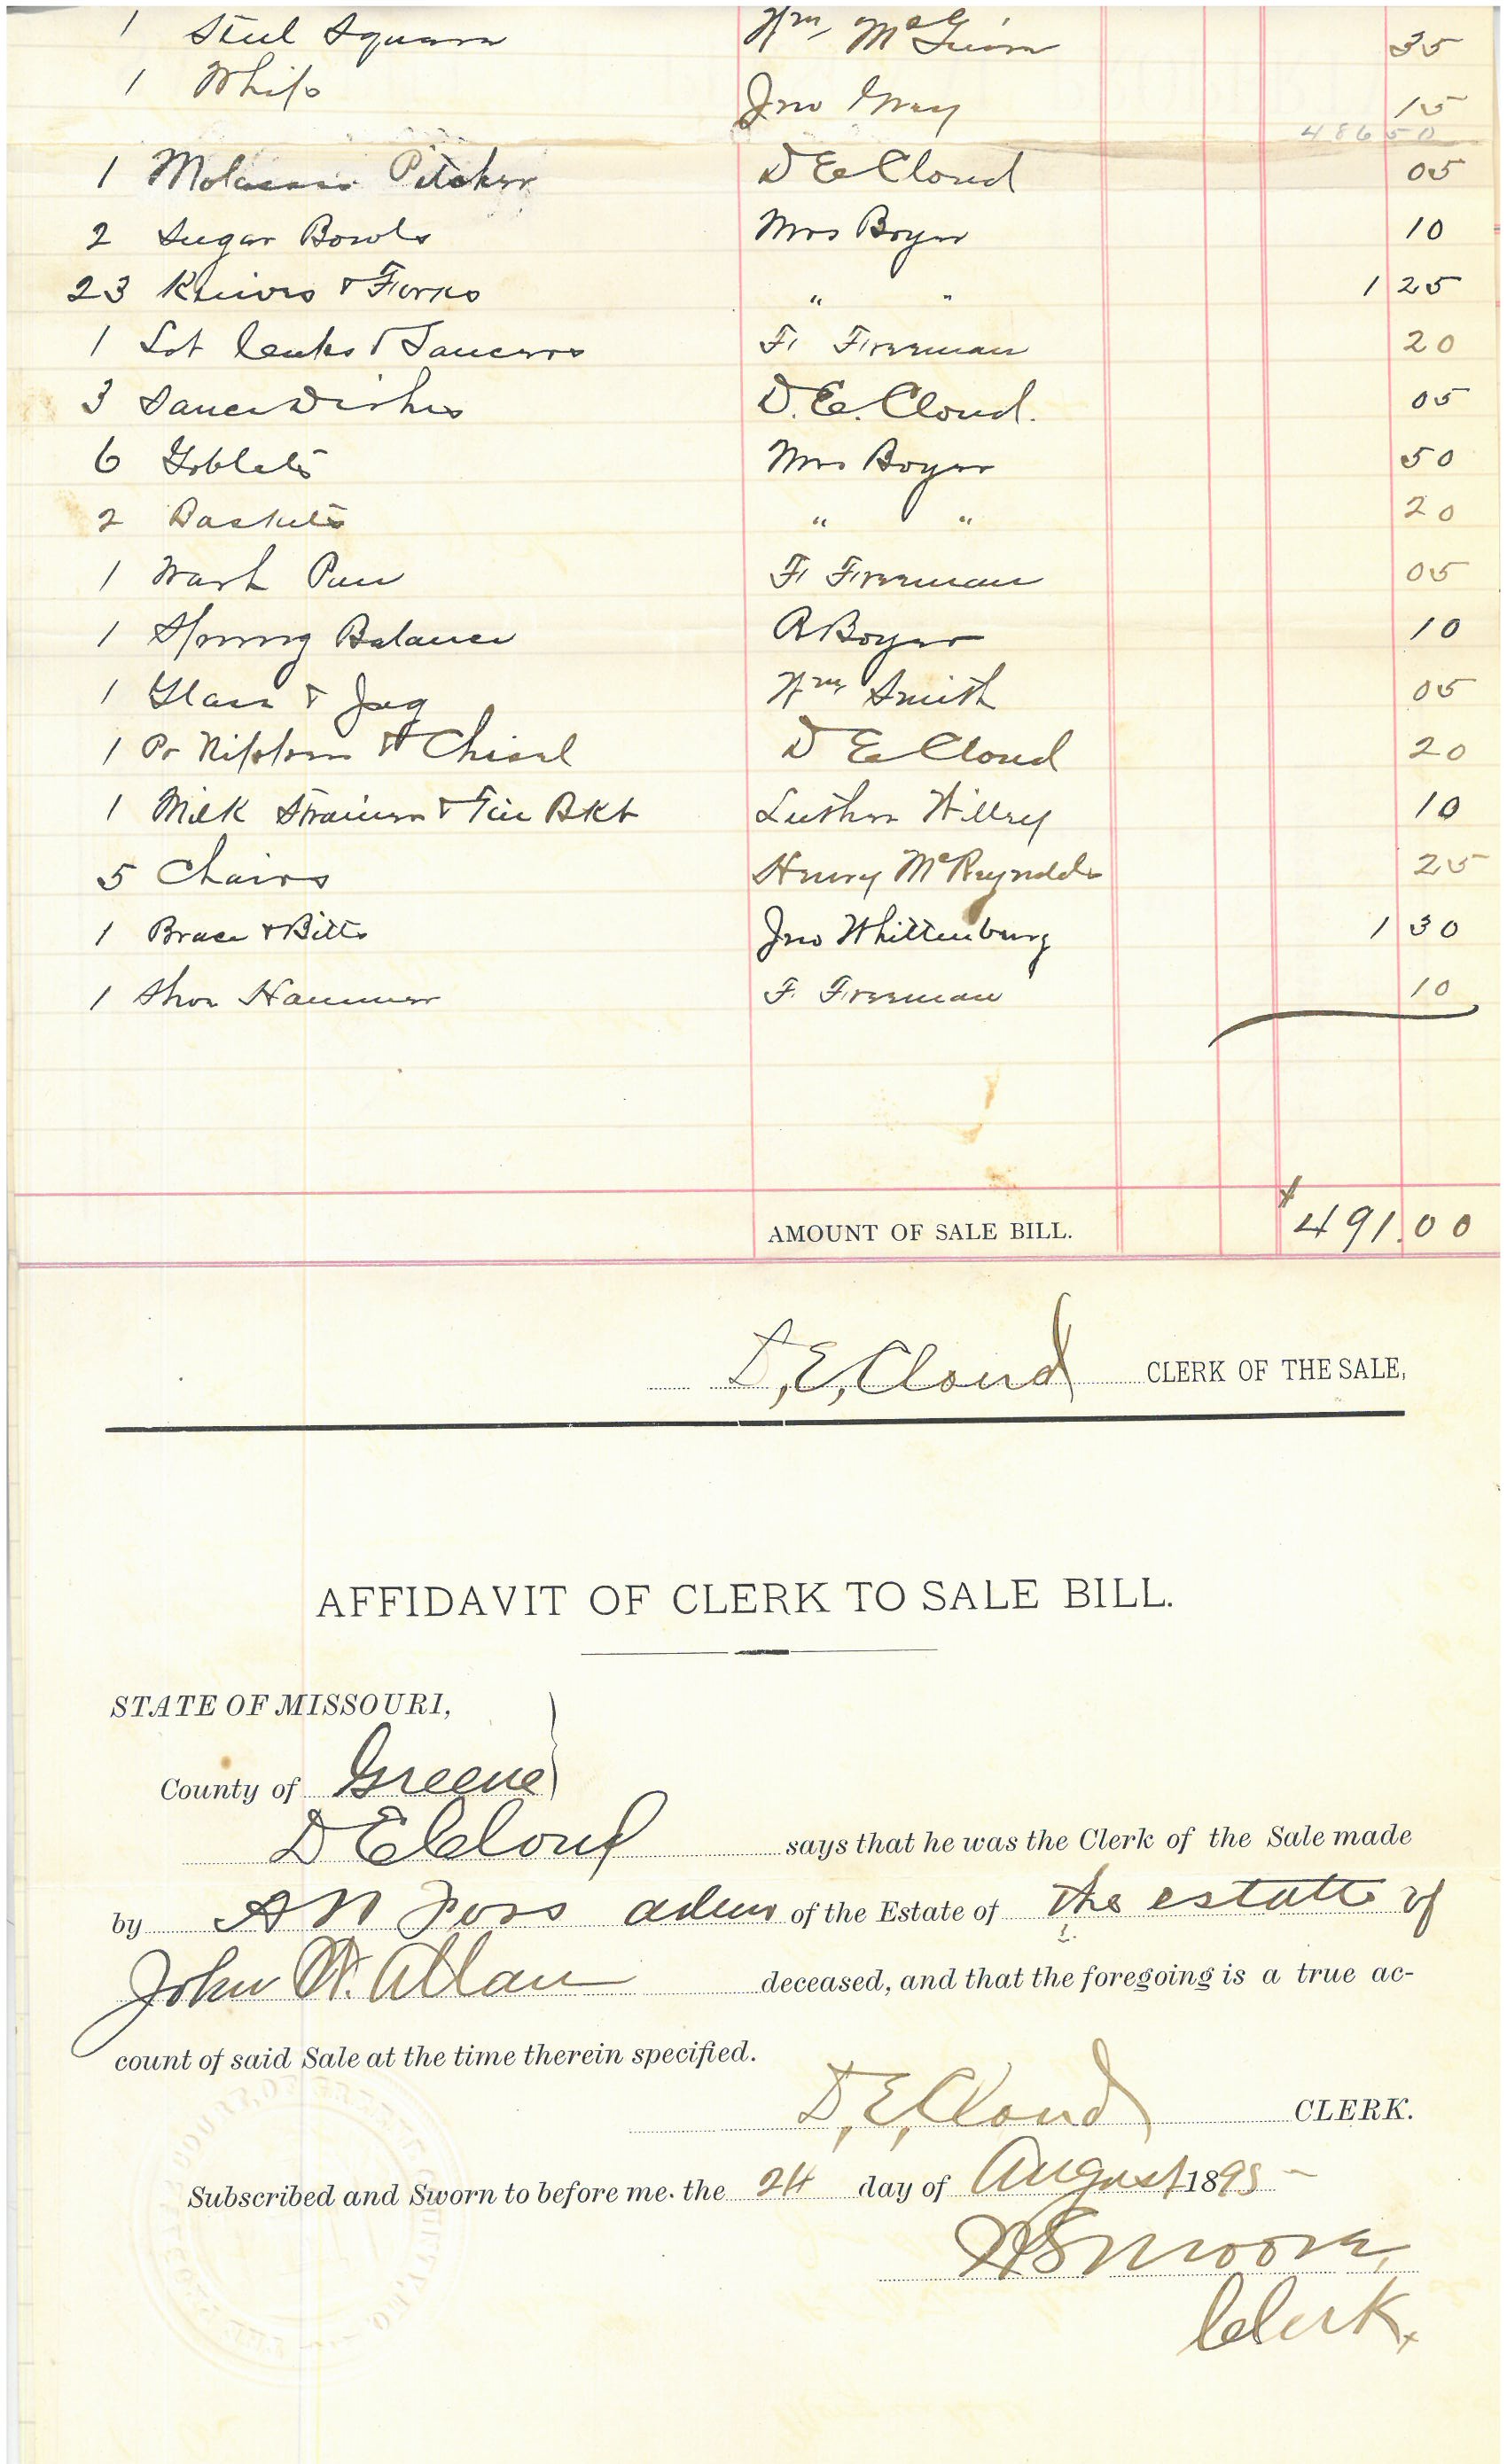 1 Steel Square Wm McGinn 35
1 Whip Jno Gray 15
486 50
1 Molasses Pitcher D E Cloud 05
2 Sugar Bowls Mrs Boyer 10
23 Knives & Forks " " 1 25
1 Lot Cups & Saucers F. Freeman 20
3 Sauce Dishes D. E. Cloud. 05
6 Goblets Mrs Boyer 50
2 Baskets " " 20
1 Wash Pan F. Freeman 05
1 Spring Balance R Boyer 10
1 Glass & Jug Wm Smith 05
1 Pr Nippers & Chisel D E Cloud 20
1 Milk Strainer & Tin Bkt Luther Willey 10
5 Chairs Henry McReynolds 25
1 Brace & Bitts Jno Whittenburg 1 30
1 Shoe Hammer F. Freeman 10
AMOUNT OF SALE BILL. $491.00
D, E, Cloud CLERK OF THE SALE,
AFFIDAVIT OF CLERK TO SALE BILL.
STATE OF MISSOURI,
County of Greene
D E Cloud says that he was the Clerk of the Sale made
by A N Foss adm of the Estate of the estate of
John W. Allan deceased, and that the foregoing is a true ac-
count of said Sale at the time therein specified.
D, E, Cloud CLERK.
Subscribed and Sworn to before me the 24 day of August 1895
Moore,
Clerk.